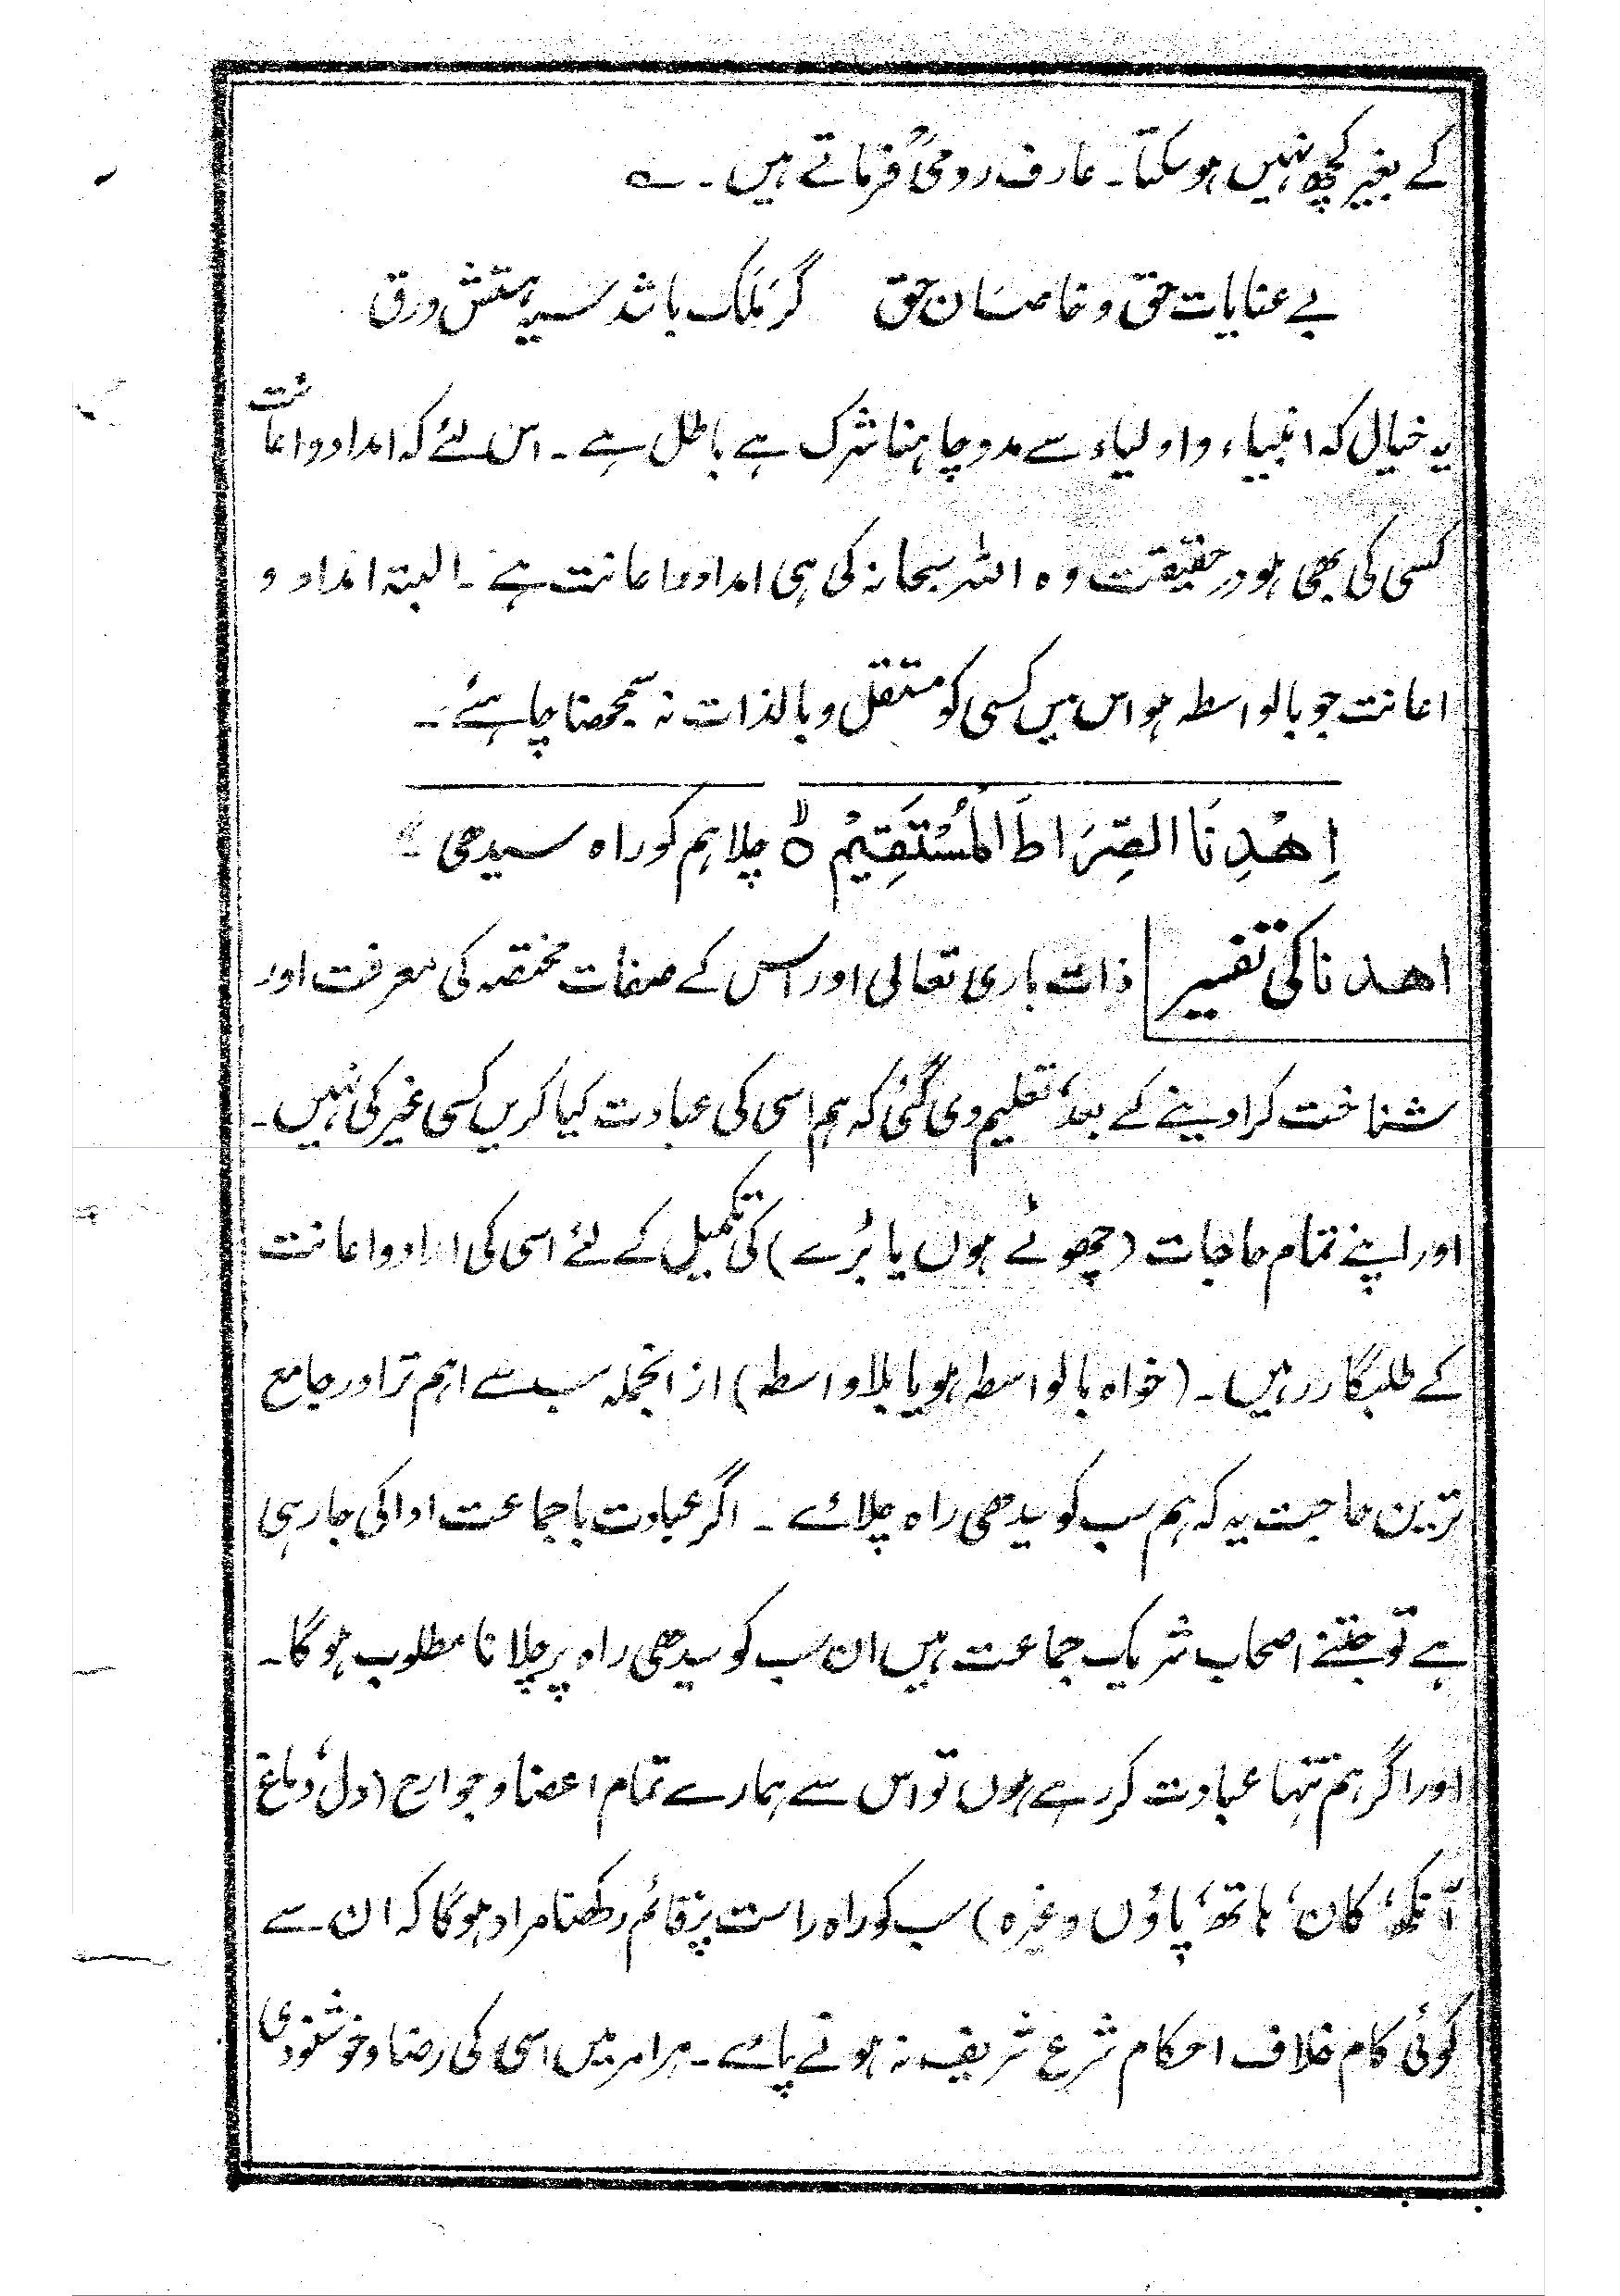 کے بغیر کچھ نہیں ہو سکتا۔ عارف رومیؒ فرماتے ہیں۔ ؎
بے عنایات حق و خاصان حق گر مَلَک باشد سیہ ہستش ورق
یہ خیال کہ انبیاء و اولیاء سے مدد چاہنا شرک ہے باطل ہے۔ اس لئے کہ امداد و اعانت
کسی کی بھی ہو درحقیقت وہ اللہ سبحانہ کی ہی امداد و اعانت ہے۔ البتہ امداد و
اعانت جو بالواسطہ ہو اس میں کسی کو مستقل و بالذات نہ سمجھنا چاہئے۔
اِهْدِنَا الصِّرَاطَ الْمُسْتَقِيْمَ ۙ چلا ہم کو راہ سیدھی
اھدنا کی تفسیر ذات باری تعالی اور اس کے صفات مختصہ کی معرفت اور
شناخت کرا دینے کے بعد، تعلیم دی گئی کہ ہم اسی کی عبادت کیا کریں کسی غیر کی نہیں۔
اور اپنے تمام حاجات (چھوٹے ہوں یا بڑے) کی تکمیل کے لئے اسی کی امداد و اعانت
کے طلبگار رہیں۔ (خواہ بالواسطہ ہو یا بلا واسطہ) از انجملہ سب سے اہم تر اور جامع
ترین حاجت یہ کہ ہم سب کو سیدھی راہ چلائے۔ اگر عبادت با جماعت ادا کی جا رہی
ہے تو جتنے اصحاب شریک جماعت ہیں ان سب کو سیدھی راہ پر چلانا مطلوب ہوگا۔
اور اگر ہم تنہا عبادت کر رہے ہوں تو اس سے ہمارے تمام اعضا و جوارح (دل، دماغ
آنکھ، کان، ہاتھ، پاؤں وغیرہ) سب کو راہ راست پر قائم رکھنا مراد ہوگا کہ ان سے
کوئی کام خلاف احکام شرع شریف نہ ہونے پائے۔ ہر امر میں اسی کی رضا و خوشنودی